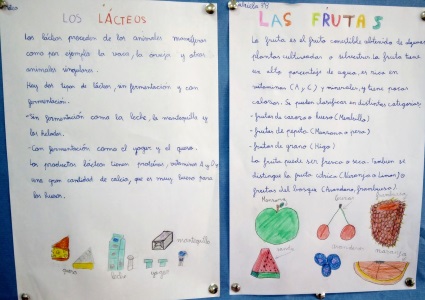 LOS LÁCTEOS
Los lácteos proceden de los animales mamíferos
como por ejemplo la vaca, la oveja y otros
animales singulares.
Hay dos tipos de lácteos, sin fermentación y con
fermentación.
- Sin fermentación como la leche, la mantequilla y
los helados.
- Con fermentación como el yogur y el queso.
Los productos lácteos tienen proteínas, vitaminas A y D y
una gran cantidad de calcio, que es muy bueno para
los huesos.
mantequilla
queso
leche
yogur
LAS FRUTAS
La fruta es el fruto comestible obtenido de algunas
plantas cultivadas o silvestres. La fruta tiene
un alto porcentaje de agua, es rica en
vitaminas (A y C) y minerales, y tiene pocas
calorías. Se pueden clasificar en distintas categorías:
- frutas de carozo o hueso (Membrillo)
- frutas de pepita (Manzana o pera)
- frutas de grano (Higo)
La fruta puede ser fresca o seca. Tambien se
distingue la fruta cítrica (Naranja o limon) y
frutas del bosque (Arandano, frambuesa)
Manzana
frambuesa
sandía
arandanos
naranja